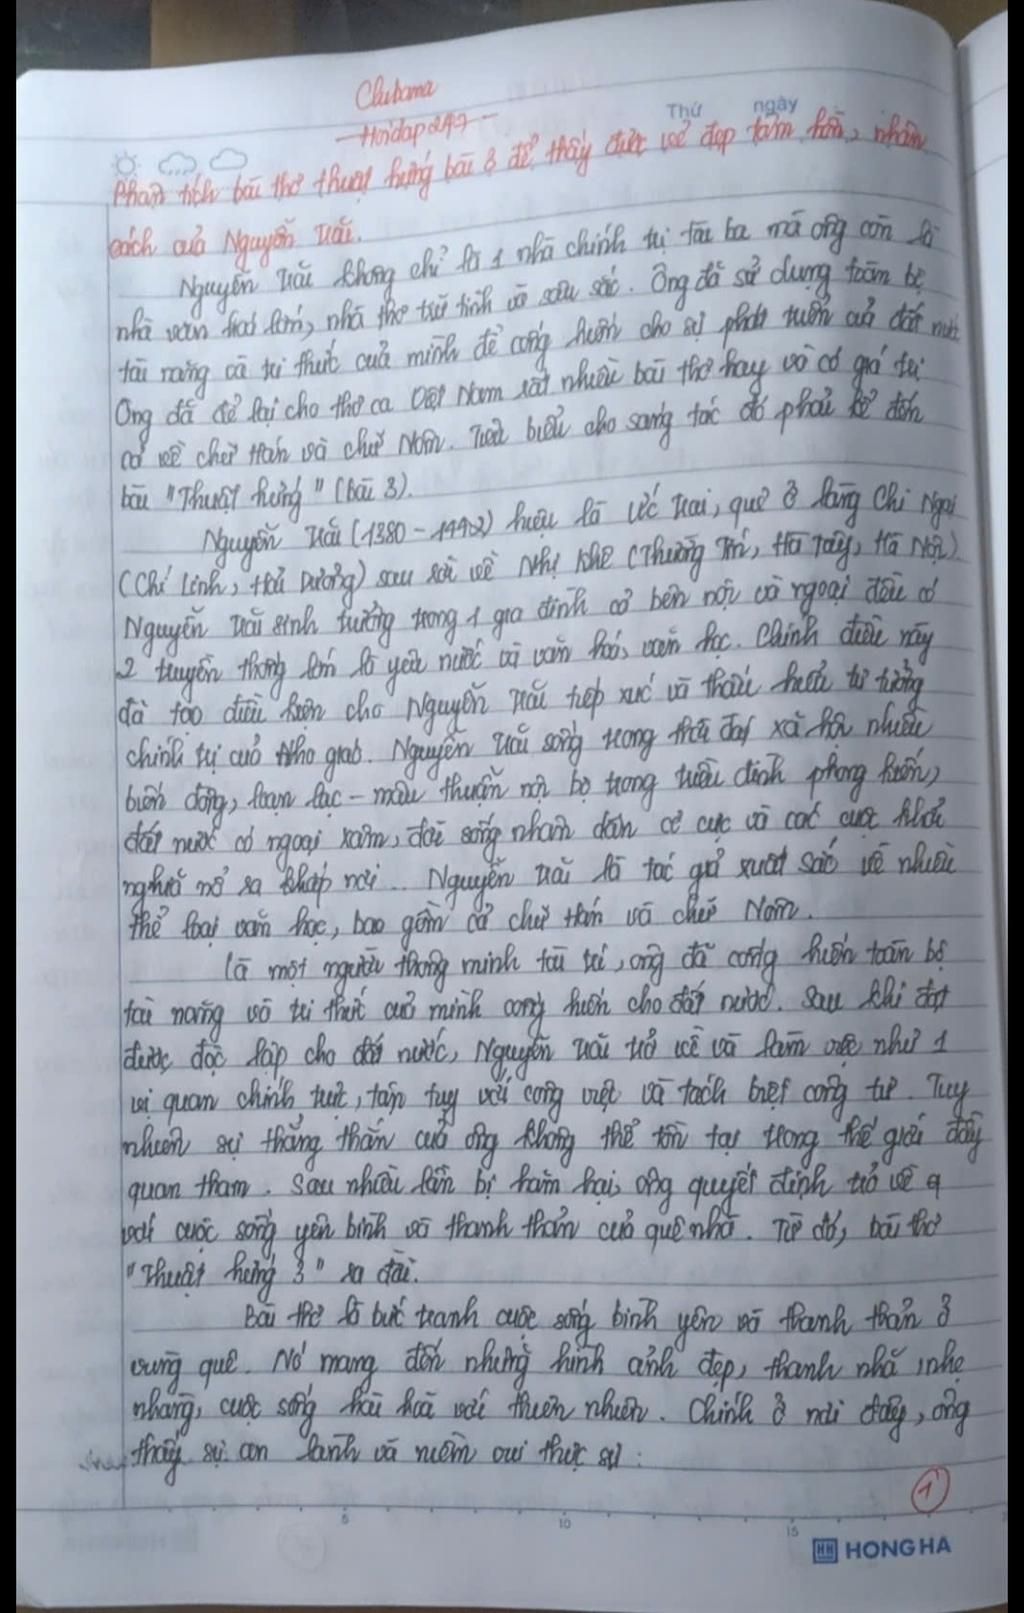 Clubama
Thứ ngày
-Hoidap247-
Phân tích bài thơ thuật hứng bài 3 để thấy được vẻ đẹp tâm hồn, nhân
cách của Nguyễn Trãi.
Nguyễn Trãi không chỉ là 1 nhà chính trị tài ba mà ông còn là
nhà văn hoá lớn, nhà thơ trữ tình và sâu sắc. Ông đã sử dụng toàn bộ
tài năng và tri thức của mình để cống hiến cho sự phát triển của đất nước
Ông đã để lại cho thơ ca Việt Nam rất nhiều bài thơ hay và có giá trị
cả về chữ Hán và chữ Nôm. Tiêu biểu cho sáng tác đó phải kể đến
bài "Thuật hứng" (bài 3).
Nguyễn Trãi (1380-1442) hiệu là Ức Trai, quê ở làng Chi Ngại
(Chí Linh, Hải Dương) sau rời về Nhị Khê (Thường Tín, Hà Tây, Hà Nội)
Nguyễn Trãi sinh trưởng trong 1 gia đình cả bên nội và ngoại đều có
2 truyền thống lớn là yêu nước và văn hoá, văn học. Chính điều này
đã tạo điều kiện cho Nguyễn Trãi tiếp xúc và thấu hiểu tư tưởng
chính trị của Nho giáo. Nguyễn Trãi sống trong thời đại xã hội nhiều
biến động, loạn lạc - mâu thuẫn nội bộ trong triều đình phong kiến,
đất nước có ngoại xâm, đời sống nhân dân cơ cực và các cuộc khởi
nghĩa nổ ra khắp nơi... Nguyễn Trãi là tác giả xuất sắc về nhiều
thể loại văn học, bao gồm cả chữ Hán và chữ Nôm.
Là một người thông minh tài trí, ông đã cống hiến toàn bộ
tài năng và tri thức của mình cống hiến cho đất nước. Sau khi đạt
được độc lập cho đất nước, Nguyễn Trãi trở về và làm việc như 1
vị quan chính trực, tận tuỵ với công việc và tách biệt công tư. Tuy
nhiên sự thẳng thắn của ông không thể tồn tại trong thế giới đầy
quan tham. Sau nhiều lần bị hãm hại, ông quyết định trở về q
với cuộc sống yên bình và thanh thản của quê nhà. Từ đó, bài thơ
"Thuật hứng 3" ra đời.
Bài thơ là bức tranh cuộc sống bình yên và thanh thản ở
vùng quê. Nó mang đến những hình ảnh đẹp, thanh nhã, nhẹ
nhàng, cuộc sống hài hoà với thiên nhiên. Chính ở nơi đây, ông
thấy sự an lành và niềm vui thực sự:
1
5 10 15
HH HONG HA